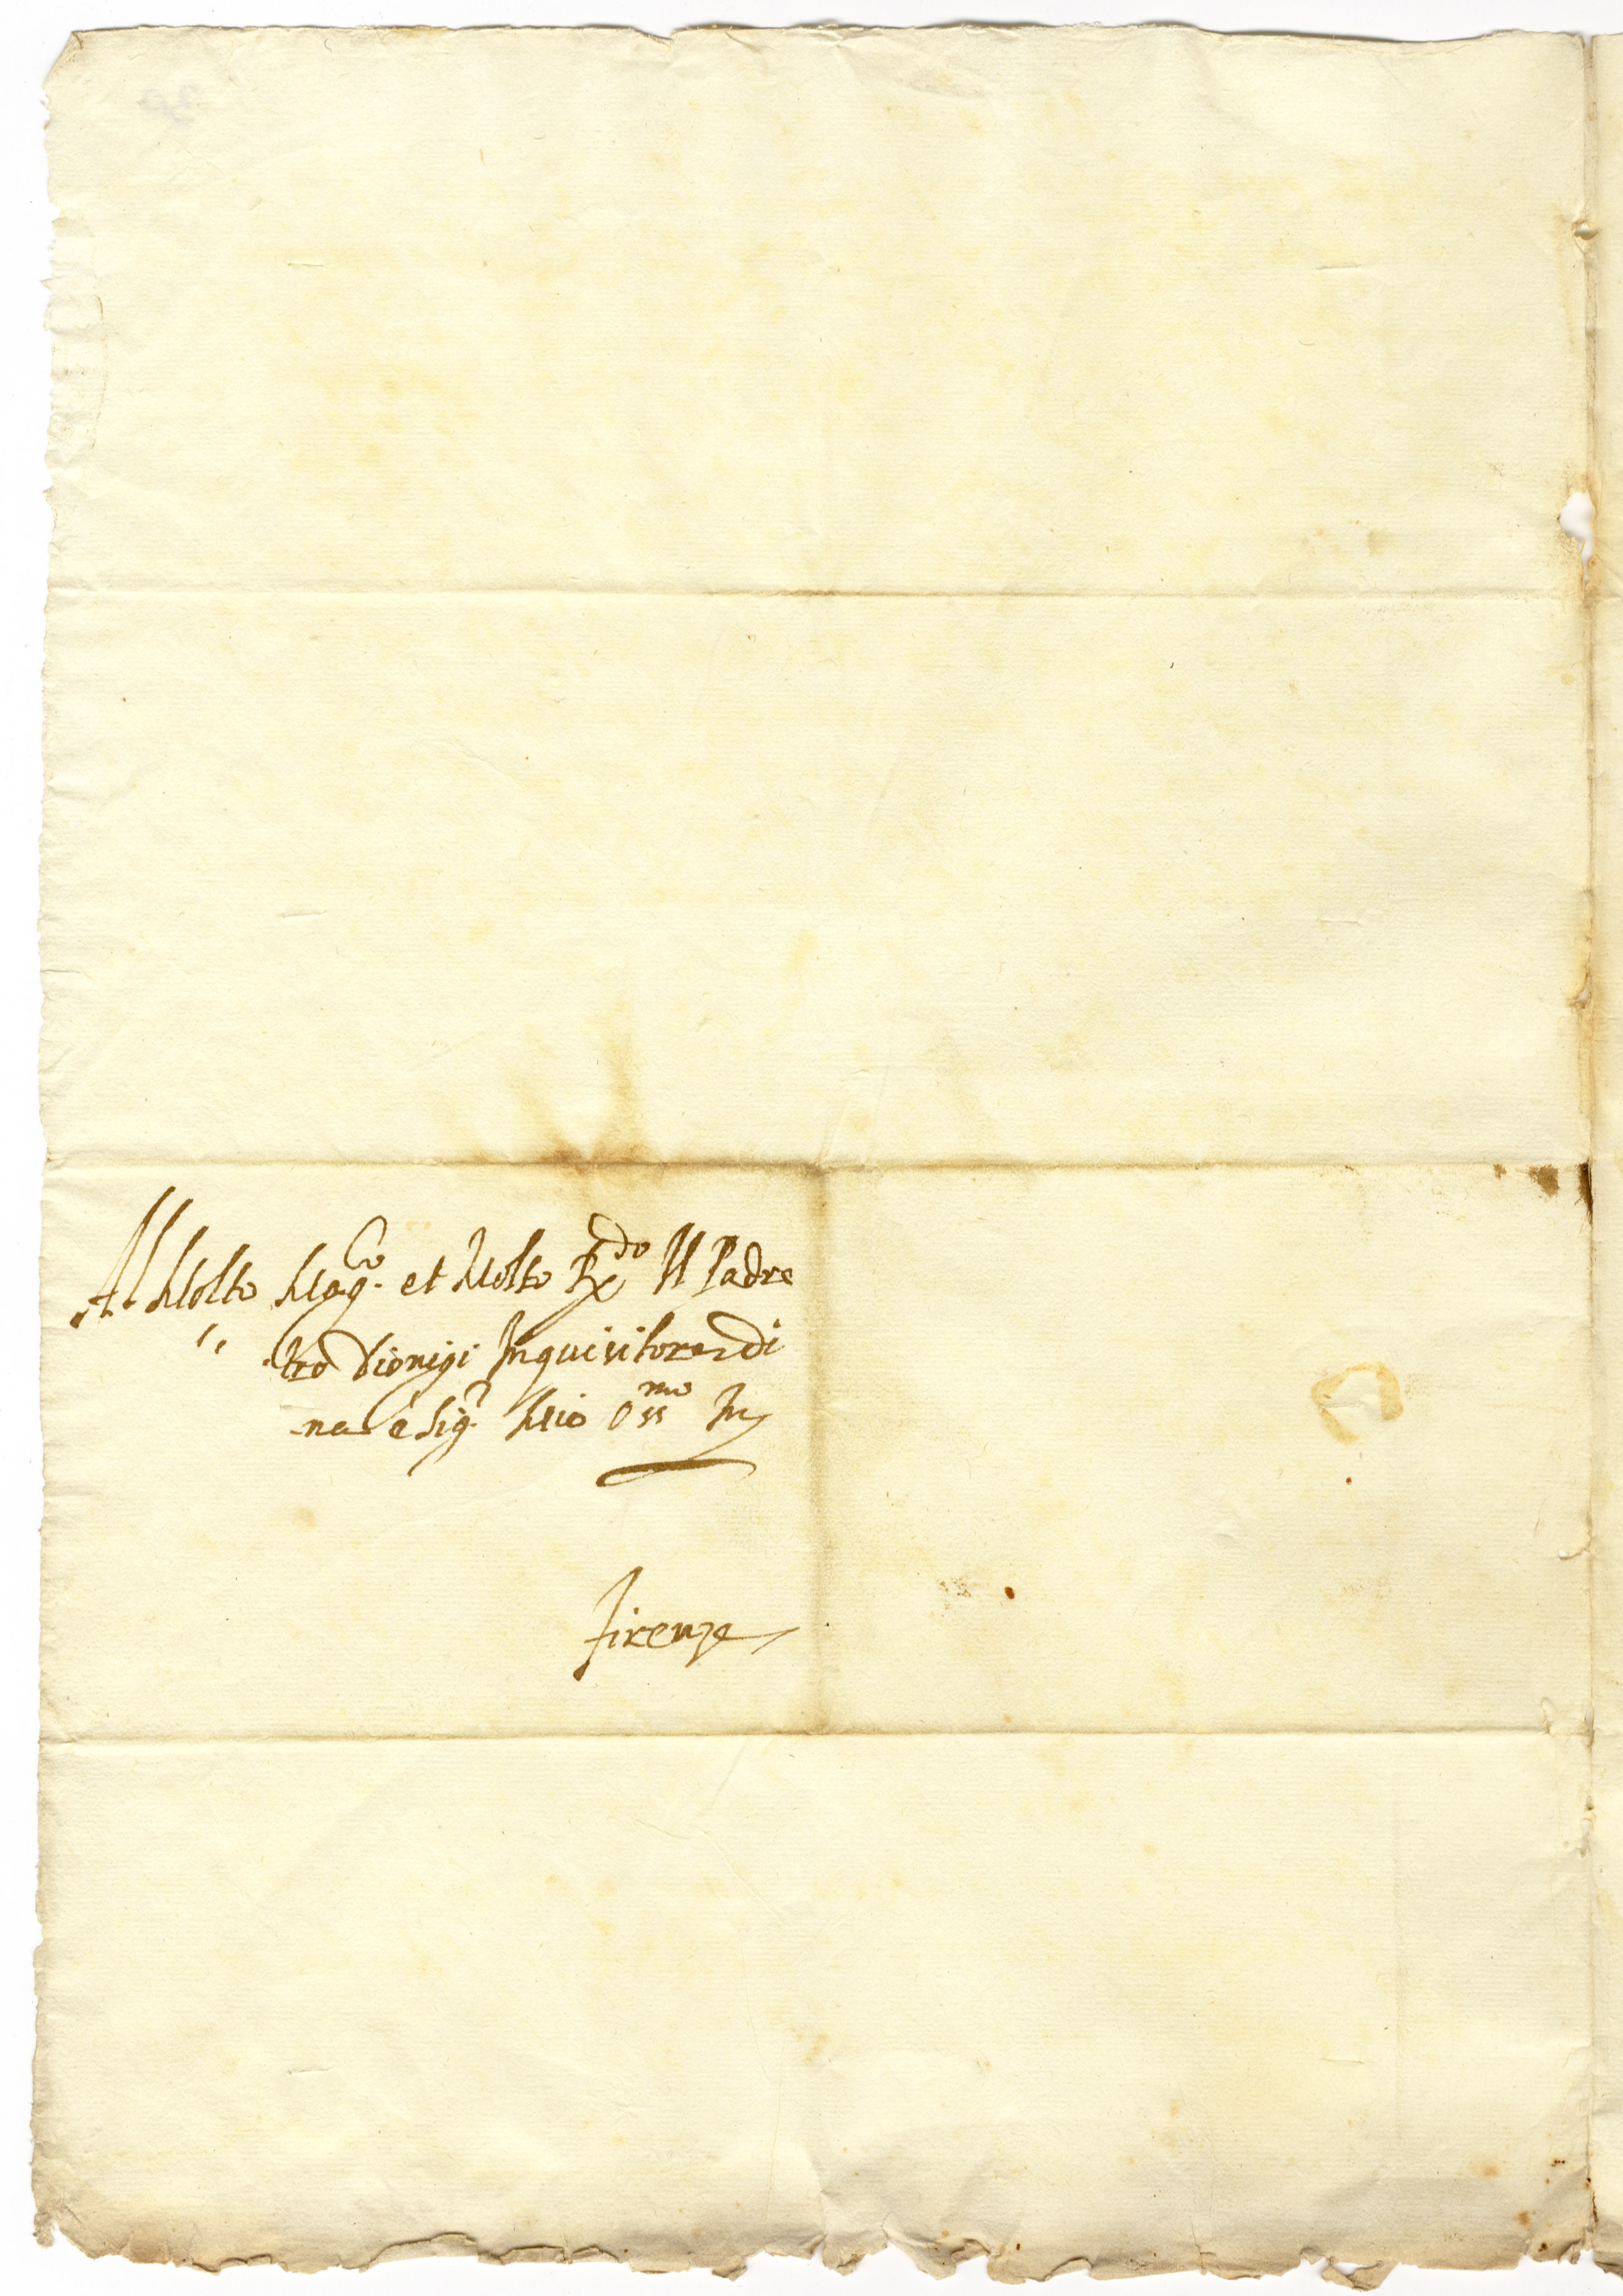 Al Molto Mag.co et Molto R.do Il Padre
-tro Dionigi Inquisitore di
-na e Sig.r Mio Oss.mo In
Firenze